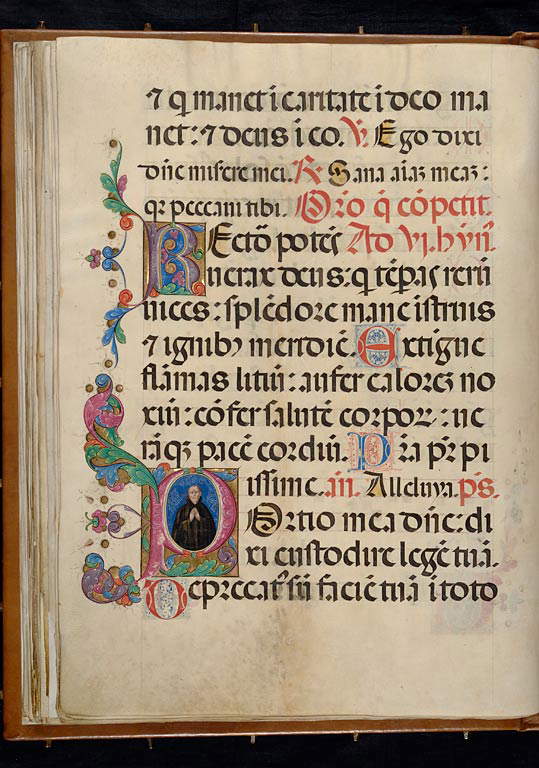 ⁊ q̄ manet ī caritate ī deo ma
net: ⁊ deus ī eo. V. Ego dixi
dn̄e miserere mei. R. Sana aīaꝫ meaꝫ:
qꝛ peccaui tibi. Or̄o q̄ cōpetit.
Rectō potēs Ad vj. hyn̄.
uerax deus: q tēp̄as rerū
uices: splēdore mane īstruis
⁊ ignibꝰ meridiē. Extigue
flāmas litiū: aufer caloreꝫ no
xiū: cōfer salutē corporꝝ: ue
rāqꝫ pacē cordiū. Pr̄a pr̄ pi
issime. añ. Alleluya. ps̄.
Portio mea dn̄e: di
xi custodire legē tuā.
Deprecatꝰ sū faciē tuā ī toto